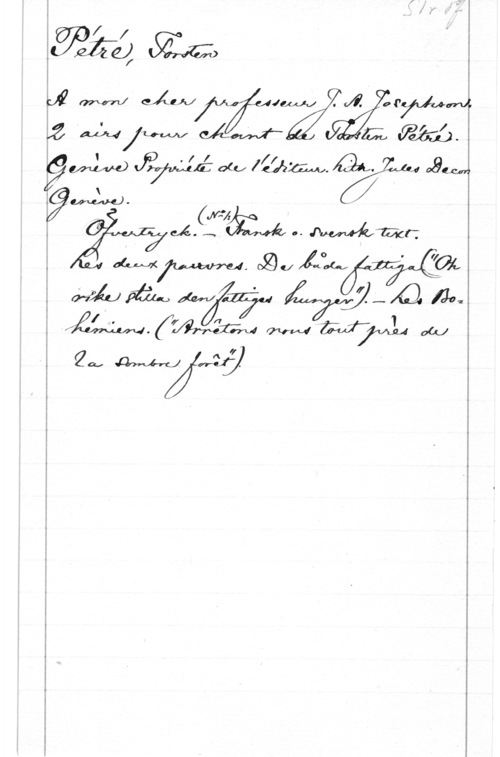 Str 17
Pétré, Torsten
A mon cher professeur J. A. Josephson.
2 airs pour chant de Torsten Pétré.
Genève Propriété de l'éditeur. Lith. Jules Decon
Genève.
2
Öfvertryck. (N:o 1) — Fransk o. svensk text.
Les deux pauvres. De båda fattiga ("Oh
rike stilla den fattiges hunger"). — Les Bo-
hémiens. ("Arrêtons nous tout près de
la sombre forêt").